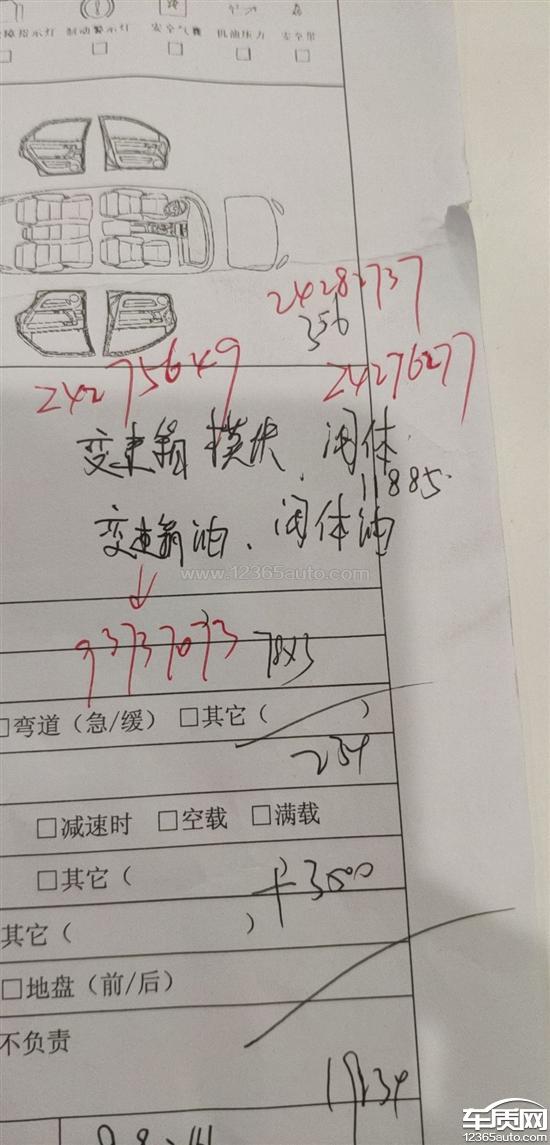 障指示灯 制动警示灯 安全气囊 机油压力 安全带
□ □ □ □ □
24282737
356
24275649 24276277
变速箱模块、阀体
11885.
变速箱油、阀体油
www.12365auto.com
93737073 78x3
□弯道（急/缓） □其它（ ）
234
□减速时 □空载 □满载
□其它（
3500
其它（ ）
□地盘（前/后）
不负责
车质网
12365auto.com